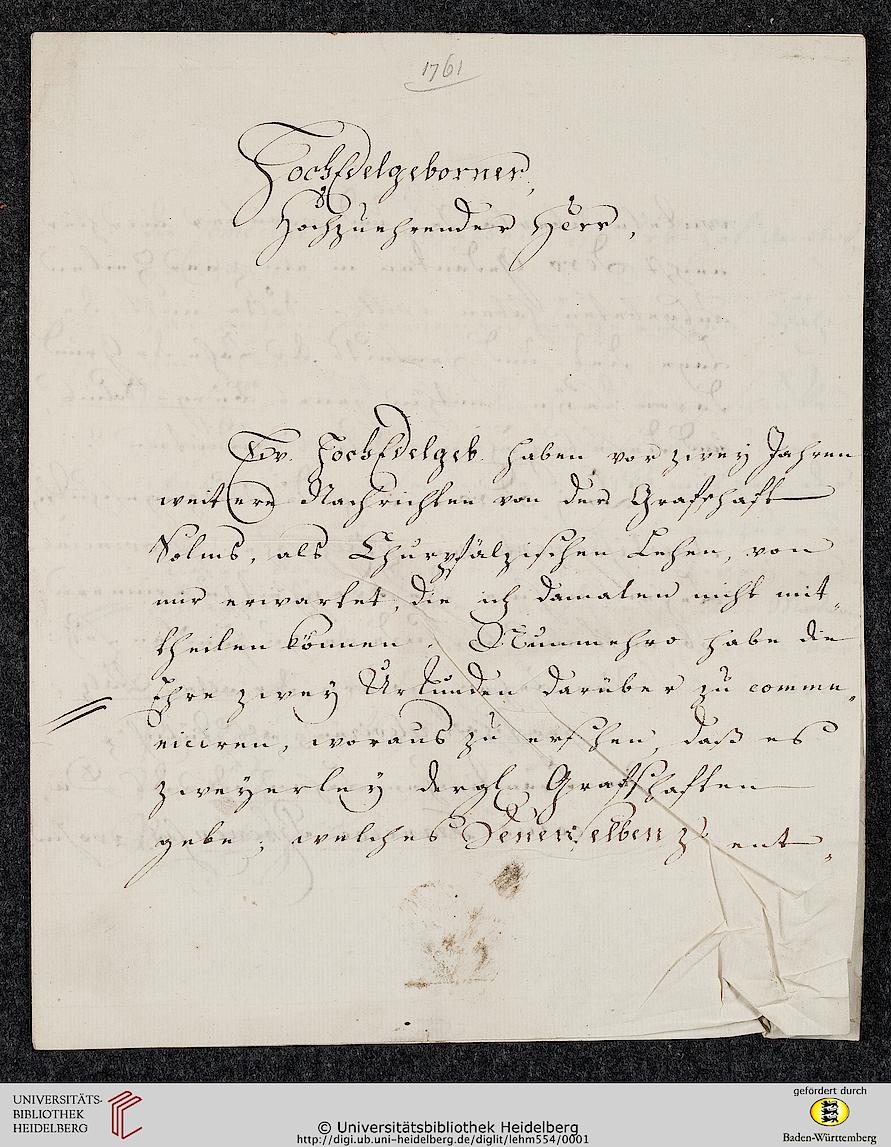 1761
HochEdelgeborner,
Hochzuehrender Herr,
Ew. HochEdelgeb. haben vor zwey Jahren
weitere Nachrichten von der Grafschaft
Solms, als Churpfälzischen Lehen, von
mir erwartet, die ich damalen nicht mit„
theilen können. Nunmehro habe die
Ehre zwey Urkunden darüber zu commu„
niciren, woraus zu ersehen, daß es
zweyerley dergl. Grafschaften
gebe; welches Denenselben zu ent„
UNIVERSITÄTS-
BIBLIOTHEK
HEIDELBERG
© Universitätsbibliothek Heidelberg
http://digi.ub.uni-heidelberg.de/diglit/lehm554/0001
gefördert durch
Baden-Württemberg